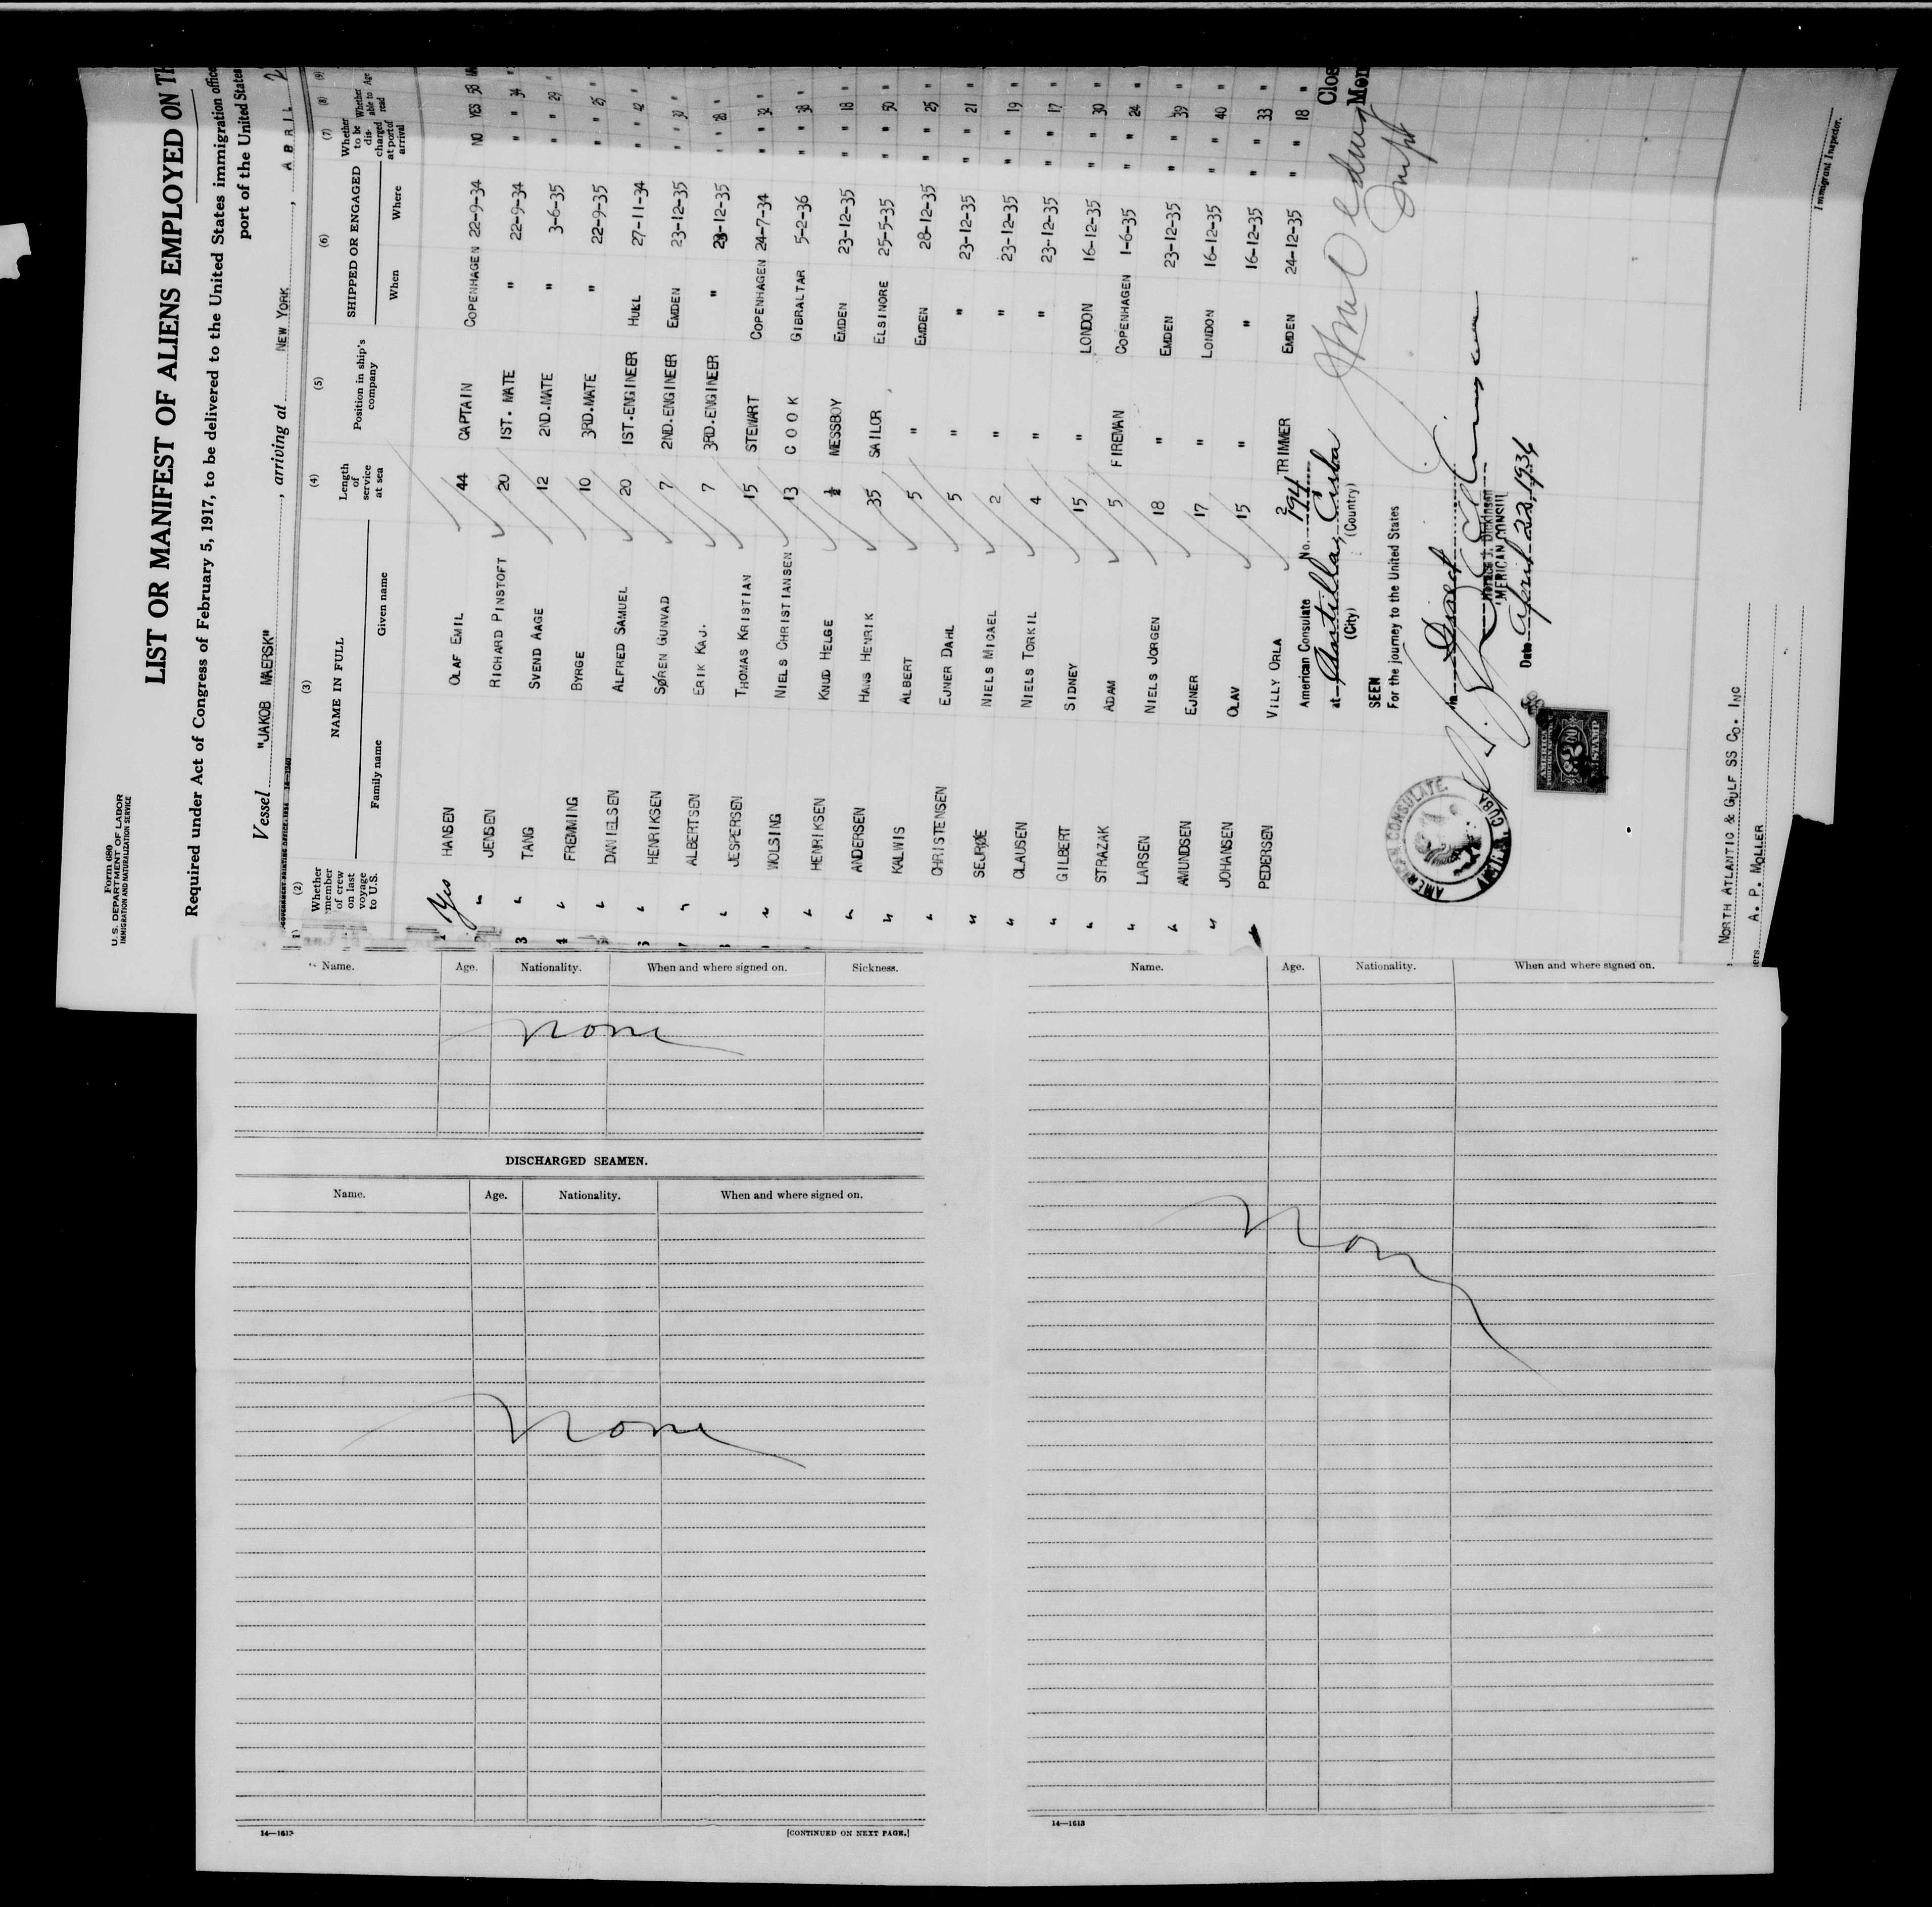 Form 680
U. S. DEPARTMENT OF LABOR
IMMIGRATION AND NATURALIZATION SERVICE
LIST OR MANIFEST OF ALIENS EMPLOYED ON
Required under Act of Congress of February 5, 1917, to be delivered to the United States immigration
port of the United States
Vessel "JAKOB MAERSK", arriving at NEW YORK, ABRIL
(2) (3) (4) (5) (6) (7) (8) (9)
Whether member of crew on last voyage to U.S. NAME IN FULL Family name Given name Length of service at sea Position in ship's company SHIPPED OR ENGAGED When Where Whether to be discharged at port of arrival Whether able to read Age
1 Yes HANSEN OLAF EMIL 44 CAPTAIN COPENHAGEN 22-9-34 NO YES 58
2 " JENSEN RICHARD PINSTOFT 20 1ST. MATE " 22-9-34 " " 34 "
3 " TANG SVEND AAGE 12 2ND.MATE " 3-6-35 " " 29 "
4 " FREMMING BYRGE 10 3RD.MATE " 22-9-35 " " 25 "
" DANIELSEN ALFRED SAMUEL 20 1ST.ENGINEER HULL 27-11-34 " " 42 "
" HENRIKSEN SØREN GUNVAD 7 2ND.ENGINEER EMDEN 23-12-35 " " 30 "
" ALBERTSEN ERIK KAJ. 7 3RD.ENGINEER " 23-12-35 " " 28 "
" JESPERSEN THOMAS KRISTIAN 15 STEWART COPENHAGEN 24-7-34 " " 32 "
" WOLSING NIELS CHRISTIANSEN 13 COOK GIBRALTAR 5-2-36 " " 38 "
" HENRIKSEN KNUD HELGE ½ MESSBOY EMDEN 23-12-35 " " 18 "
" ANDERSEN HANS HENRIK 35 SAILOR ELSINORE 25-5-35 " " 50 "
" KALWIS ALBERT 5 " EMDEN 28-12-35 " " 25 "
" CHRISTENSEN EJNER DAHL 5 " " 23-12-35 " " 21 "
" SEJRØE NIELS MICAEL 2 " " 23-12-35 " " 19 "
" CLAUSEN NIELS TORKIL 4 " " 23-12-35 " " 17 "
" GILBERT SIDNEY 15 " LONDON 16-12-35 " " 30 "
" STRAZAK ADAM 5 FIREMAN COPENHAGEN 1-6-35 " " 24 "
" LARSEN NIELS JORGEN 18 " EMDEN 23-12-35 " " 39 "
" AMUNDSEN EJNER 17 " LONDON 16-12-35 " " 40 "
" JOHANSEN OLAV 15 " " 16-12-35 " " 33 "
" PEDERSEN VILLY ORLA 2 TRIMMER EMDEN 24-12-35 " " 18 "
American Consulate No. 194
at Antilla, Cuba
(City) (Country)
SEEN
For the journey to the United States
in Direct
AMERICAN CONSUL
Date April 22, 1936
AMERICAN CONSULATE
ANTILLA, CUBA
AMERICAN
FOREIGN SERVICE
STAMP
NORTH ATLANTIC & GULF SS CO. INC
A. P. MOLLER
Immigrant Inspector.
Name. Age. Nationality. When and where signed on. Sickness.
None
DISCHARGED SEAMEN.
Name. Age. Nationality. When and where signed on.
None
14—1613 [CONTINUED ON NEXT PAGE.]
Name. Age. Nationality. When and where signed on.
None
14—1613